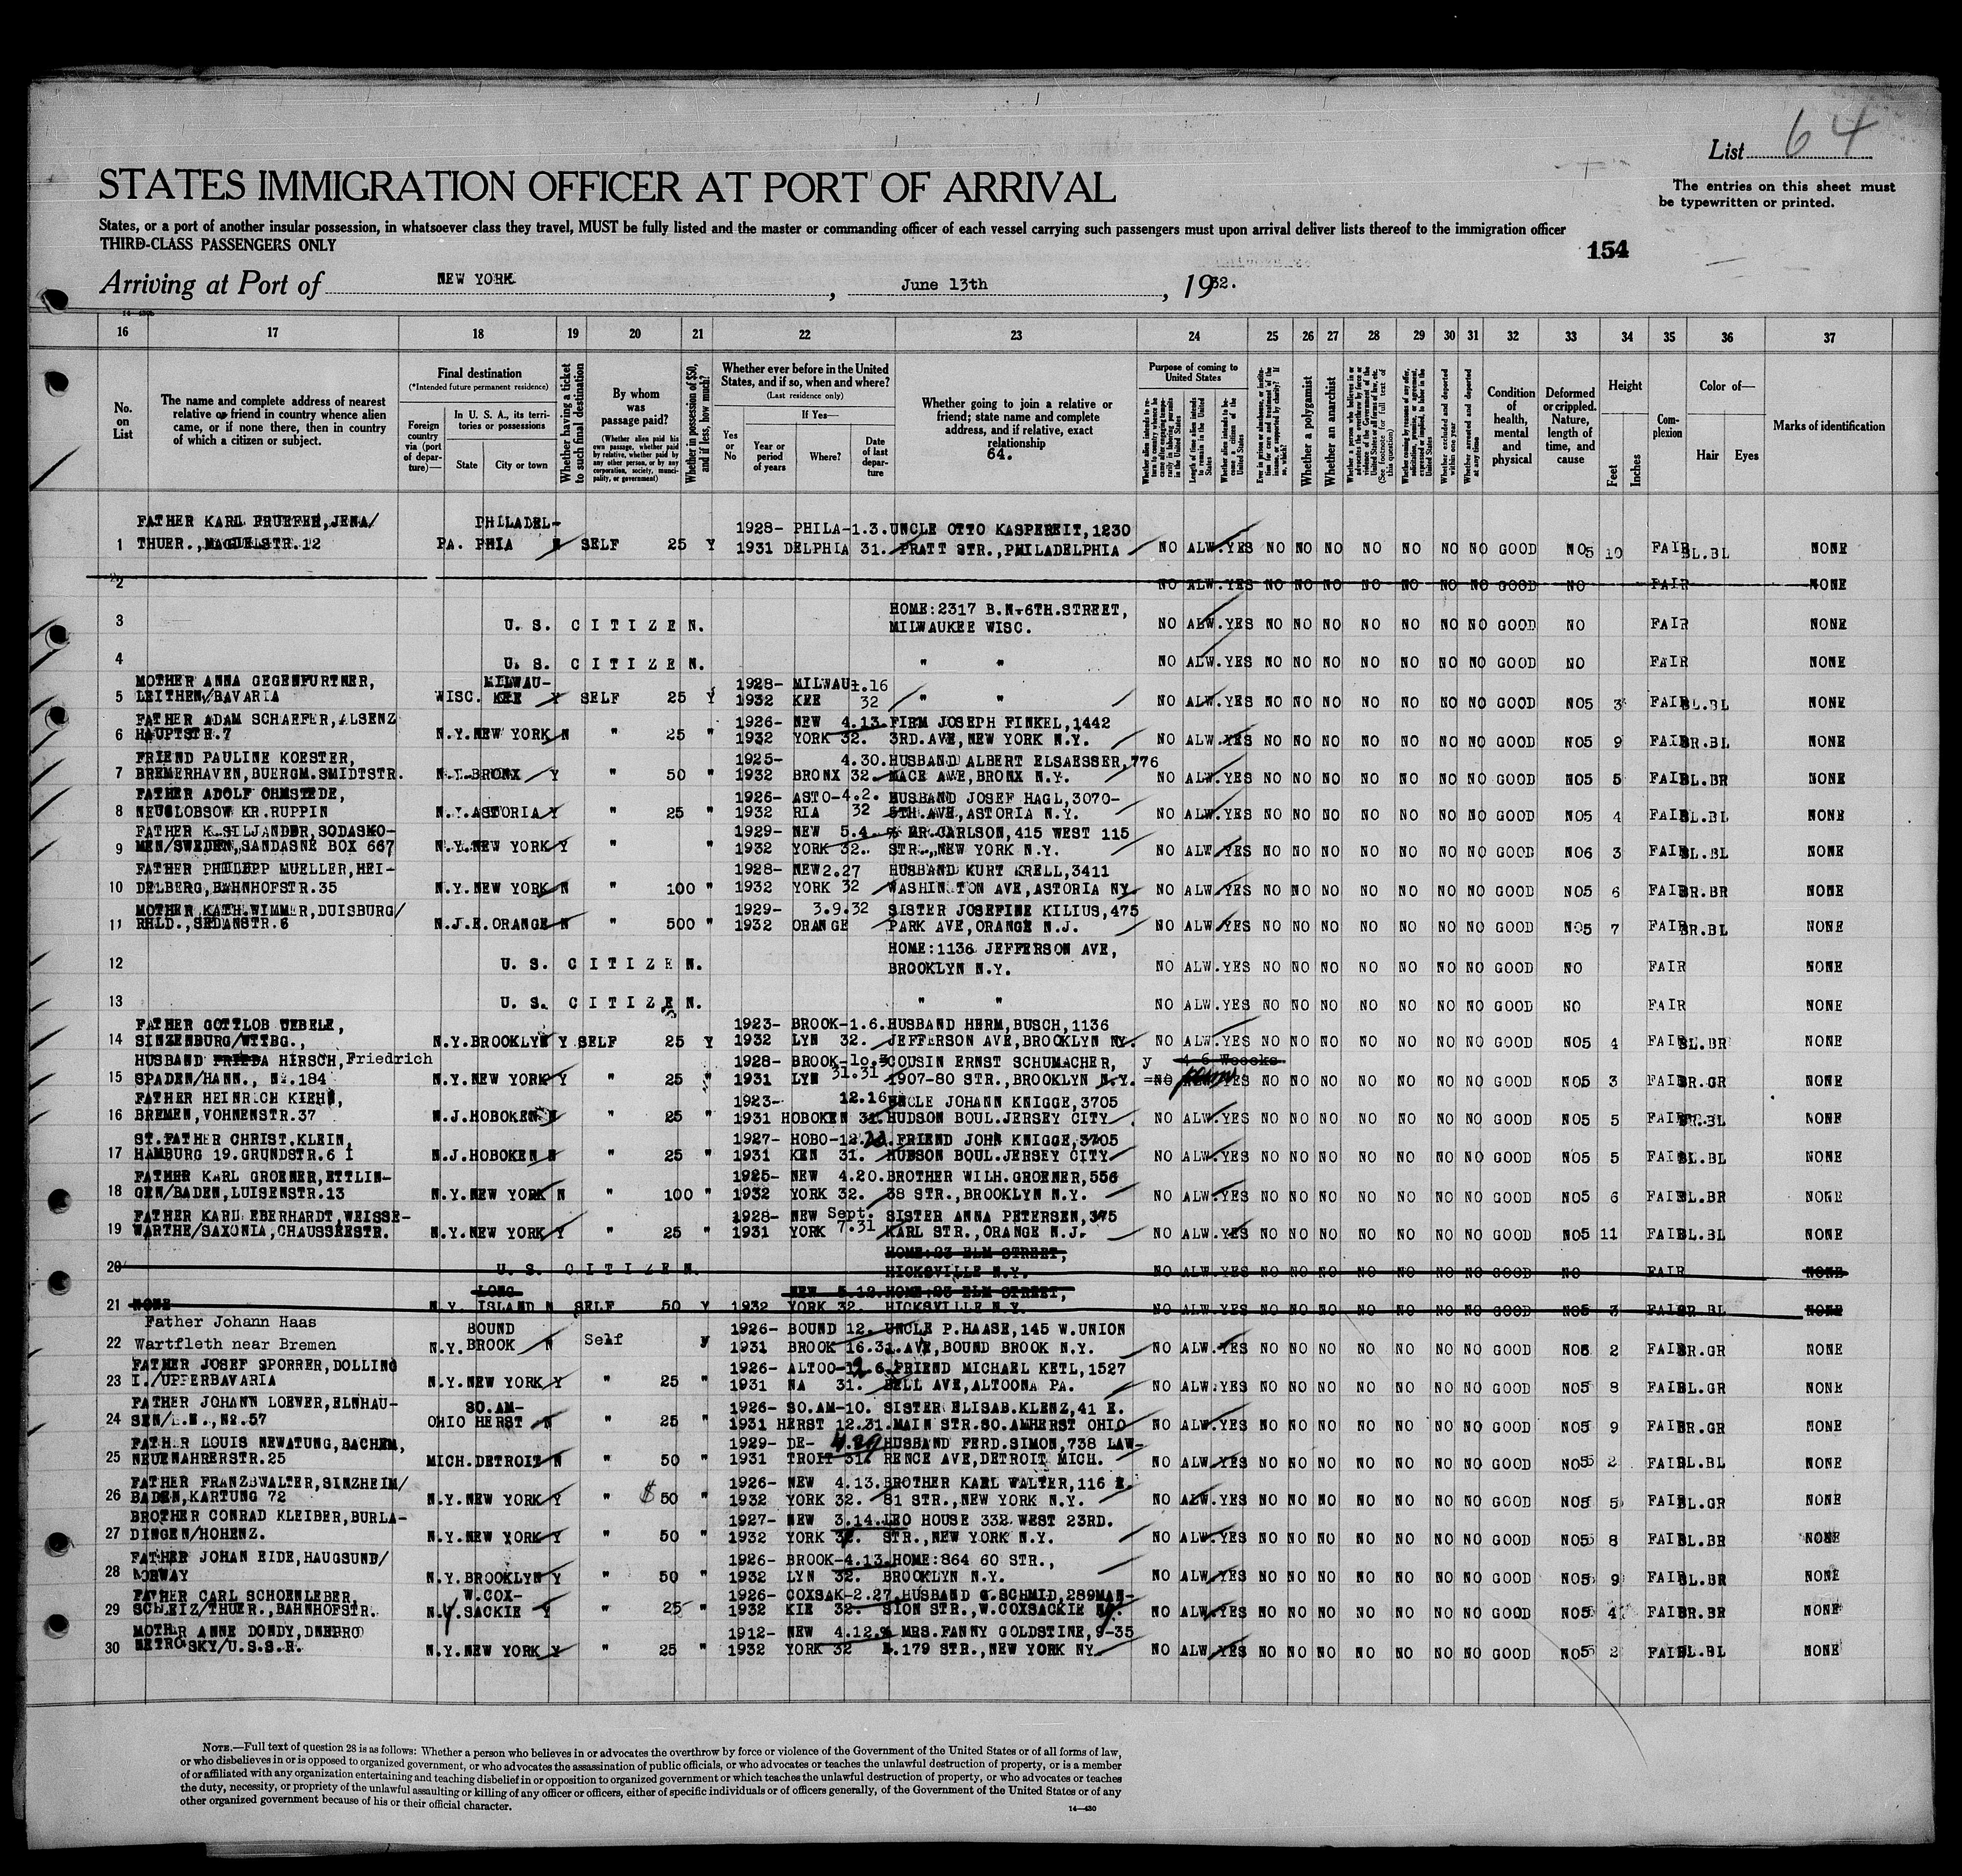 List 64
STATES IMMIGRATION OFFICER AT PORT OF ARRIVAL
The entries on this sheet must
be typewritten or printed.
States, or a port of another insular possession, in whatsoever class they travel, MUST be fully listed and the master or commanding officer of each vessel carrying such passengers must upon arrival deliver lists thereof to the immigration officer
THIRD-CLASS PASSENGERS ONLY
154
Arriving at Port of NEW YORK, June 13th, 1932.
16 17 18 19 20 21 22 23 24 25 26 27 28 29 30 31 32 33 34 35 36 37
No. on List
The name and complete address of nearest
relative or friend in country whence alien
came, or if none there, then in country
of which a citizen or subject.
Final destination
(*Intended future permanent residence)
Foreign country via (port of departure)—
In U. S. A., its territories or possessions
State
City or town
Whether having a ticket to such final destination
By whom was passage paid?
(Whether alien paid his own passage, whether paid by relative, whether paid by any other person, or by any corporation, society, municipality, or government)
Whether in possession of $50, and if less, how much?
Whether ever before in the United
States, and if so, when and where?
(Last residence only)
Yes or No
If Yes—
Year or period of years
Where?
Date of last departure
Whether going to join a relative or
friend; state name and complete
address, and if relative, exact
relationship
64.
Purpose of coming to United States
Whether a polygamist
Whether an anarchist
Whether excluded and deported within one year
Whether arrested and deported at any time
Condition of health, mental and physical
Deformed or crippled. Nature, length of time, and cause
Height
Feet
Inches
Complexion
Color of—
Hair
Eyes
Marks of identification
FATHER KARL PRUEFER, JENA/ PHILADEL- 1928- PHILA-1.3. UNCLE OTTO KASPEREIT, 1230
1 THUER., MAGDELSTR.12 PA. PHIA N SELF 25 Y 1931 DELPHIA 31. PRATT STR., PHILADELPHIA NO ALW. YES NO NO NO NO NO NO NO GOOD NO 5 10 FAIR BL.BL NONE
2 NO ALW. YES NO NO NO NO NO NO NO GOOD NO FAIR NONE
HOME:2317 B.N.6TH.STREET,
3 U. S. CITIZEN. MILWAUKEE WISC. NO ALW. YES NO NO NO NO NO NO NO GOOD NO FAIR NONE
4 U. S. CITIZEN. " " NO ALW. YES NO NO NO NO NO NO NO GOOD NO FAIR NONE
MOTHER ANNA GEGENFURTNER, MILWAU- 1928- MILWAU 1.16
5 LEITHEN/BAVARIA WISC. KEE Y SELF 25 Y 1932 KEE 32 " " NO ALW. YES NO NO NO NO NO NO NO GOOD NO 5 3 FAIR BL.BL NONE
FATHER ADAM SCHAEFER, ALSENZ 1926- NEW 4.13. FIRM JOSEPH FINKEL, 1442
6 HAUPTSTR.7 N.Y. NEW YORK N " 25 " 1932 YORK 32. 3RD.AVE, NEW YORK N.Y. NO ALW. YES NO NO NO NO NO NO NO GOOD NO 5 9 FAIR BR.BL NONE
FRIEND PAULINE KOESTER, 1925- 4.30. HUSBAND ALBERT ELSAESSER, 776
7 BREMERHAVEN, BUERGM.SMIDTSTR. N.Y. BRONX Y " 50 " 1932 BRONX 32. MACE AVE, BRONX N.Y. NO ALW. YES NO NO NO NO NO NO NO GOOD NO 5 5 FAIR BL.BR NONE
FATHER ADOLF OHMSTEDE, 1926- ASTO-4.2. HUSBAND JOSEF HAGL, 3070-
8 NEUGLOBSOW KR.RUPPIN N.Y. ASTORIA Y " 25 " 1932 RIA 32 5TH.AVE, ASTORIA N.Y. NO ALW. YES NO NO NO NO NO NO NO GOOD NO 5 4 FAIR BL.BL NONE
FATHER K.SILJANDER, SODASKO- 1929- NEW 5.4. % MR.CARLSON, 415 WEST 115
9 MEN/SWEDEN, SANDASNE BOX 667 N.Y. NEW YORK Y " 1932 YORK 32. STR., NEW YORK N.Y. NO ALW. YES NO NO NO NO NO NO NO GOOD NO 6 3 FAIR BL.BL NONE
FATHER PHILIPP MUELLER, HEI- 1928- NEW 2.27 HUSBAND KURT KRELL, 3411
10 DELBERG, BAHNHOFSTR.35 N.Y. NEW YORK N " 100 " 1932 YORK 32 WASHINGTON AVE, ASTORIA NY. NO ALW. YES NO NO NO NO NO NO NO GOOD NO 5 6 FAIR BR.BR NONE
MOTHER KATH.WIMMER, DUISBURG/ 1929- 3.9.32 SISTER JOSEFINE KILIUS, 475
11 RHLD., SEDANSTR.6 N.J. E. ORANGE N " 500 " 1932 ORANGE PARK AVE, ORANGE N.J. NO ALW. YES NO NO NO NO NO NO NO GOOD NO 5 7 FAIR BR.BL NONE
HOME:1136 JEFFERSON AVE,
12 U. S. CITIZEN. BROOKLYN N.Y. NO ALW. YES NO NO NO NO NO NO NO GOOD NO FAIR NONE
13 U. S. CITIZEN. " " NO ALW. YES NO NO NO NO NO NO NO GOOD NO FAIR NONE
FATHER GOTTLOB UEBELE, 1923- BROOK-1.6. HUSBAND HERM, BUSCH, 1136
14 SINZENBURG/WTTBG., N.Y. BROOKLYN Y SELF 25 Y 1932 LYN 32. JEFFERSON AVE, BROOKLYN NY. NO ALW. YES NO NO NO NO NO NO NO GOOD NO 5 4 FAIR BL.BR NONE
HUSBAND FRIEDA HIRSCH, Friedrich 1928- BROOK- COUSIN ERNST SCHUMACHER, y 4-6 Weecks
15 SPADEN/HANN., No.184 N.Y. NEW YORK Y " 25 " 1931 LYN 31.31 1907-80 STR., BROOKLYN N.Y. NO perm YES NO NO NO NO NO NO NO GOOD NO 5 3 FAIR BR.GR NONE
FATHER HEINRICH KIEHN, 1923- 12.16 UNCLE JOHANN KNIGGE, 3705
16 BREMEN, VOHNENSTR.37 N.J. HOBOKEN N " 25 " 1931 HOBOKEN 31. HUDSON BOUL.JERSEY CITY NO ALW. YES NO NO NO NO NO NO NO GOOD NO 5 5 FAIR BR.BL NONE
ST.FATHER CHRIST.KLEIN, 1927- HOBO-12. FRIEND JOHN KNIGGE, 3705
17 HAMBURG 19.GRUNDSTR.6 I N.J. HOBOKEN N " 25 " 1931 KEN 31. HUDSON BOUL.JERSEY CITY NO ALW. YES NO NO NO NO NO NO NO GOOD NO 5 5 FAIR BL.BL NONE
FATHER KARL GROENER, ETTLIN- 1925- NEW 4.20. BROTHER WILH.GROENER, 556
18 GEN/BADEN, LUISENSTR.13 N.Y. NEW YORK N " 100 " 1932 YORK 32. 38 STR., BROOKLYN N.Y. NO ALW. YES NO NO NO NO NO NO NO GOOD NO 5 6 FAIR BL.BR NONE
FATHER KARL EBERHARDT, WEISSE- 1928- NEW Sept. SISTER ANNA PETERSEN, 375
19 WARTHE/SAXONIA, CHAUSSEESTR. N.Y. NEW YORK Y " 25 " 1931 YORK 7.31 KARL STR., ORANGE N.J. NO ALW. YES NO NO NO NO NO NO NO GOOD NO 5 11 FAIR BL.BL NONE
HOME:23 ELM STREET,
20 U. S. CITIZEN. HICKSVILLE N.Y. NO ALW. YES NO NO NO NO NO NO NO GOOD NO FAIR NONE
LONG NEW 5.12. HOME:23 ELM STREET,
21 NONE N.Y. ISLAND N SELF 50 Y 1932 YORK 32. HICKSVILLE N.Y. NO ALW. YES NO NO NO NO NO NO NO GOOD NO 5 3 FAIR BR.BL NONE
Father Johann Haas BOUND 1926- BOUND 12. UNCLE P.HAASE, 145 W.UNION
22 Wartfleth near Bremen N.Y. BROOK N Self y 1931 BROOK 16.31. AVE, BOUND BROOK N.Y. NO ALW. YES NO NO NO NO NO NO NO GOOD NO 5 2 FAIR BR.GR NONE
FATHER JOSEF SPORRER, DOLLING 1926- ALTOO- FRIEND MICHAEL KETL, 1527
23 I./UPPERBAVARIA N.Y. NEW YORK Y " 25 " 1931 NA 31. BELL AVE, ALTOONA PA. NO ALW. YES NO NO NO NO NO NO NO GOOD NO 5 8 FAIR BL.GR NONE
FATHER JOHANN LOEWER, ELNHAU- SO.AM- 1926- SO.AM-10. SISTER ELISAB.KLENZ, 41 E.
24 SEN/ No.57 OHIO HERST N " 25 " 1931 HERST 12.31. MAIN STR.SO.AMHERST OHIO NO ALW. YES NO NO NO NO NO NO NO GOOD NO 5 9 FAIR BR.GR NONE
FATHER LOUIS NEWATUNG, BACHEM, 1929- DE- 4.29 HUSBAND FERD.SIMON, 738 LAW-
25 NEUENAHRERSTR.25 MICH. DETROIT N " 50 " 1931 TROIT 31. RENCE AVE, DETROIT MICH. NO ALW. YES NO NO NO NO NO NO NO GOOD NO 5 2 FAIR BL.BL NONE
FATHER FRANZ WALTER, SINZHEIM/ 1926- NEW 4.13. BROTHER KARL WALTER, 116 E.
26 BADEN, KARTUNG 72 N.Y. NEW YORK Y " $ 50 " 1932 YORK 32. 81 STR., NEW YORK N.Y. NO ALW. YES NO NO NO NO NO NO NO GOOD NO 5 5 FAIR BL.GR NONE
BROTHER CONRAD KLEIBER, BURLA- 1927- NEW 3.14. LEO HOUSE 332 WEST 23RD.
27 DINGEN/HOHENZ. N.Y. NEW YORK Y " 50 " 1932 YORK 32. STR., NEW YORK N.Y. NO ALW. YES NO NO NO NO NO NO NO GOOD NO 5 8 FAIR BL.BR NONE
FATHER JOHAN EIDE, HAUGSUND/ 1926- BROOK-4.13. HOME:864 60 STR.,
28 NORWAY N.Y. BROOKLYN Y " 50 " 1932 LYN 32. BROOKLYN N.Y. NO ALW. YES NO NO NO NO NO NO NO GOOD NO 5 9 FAIR BL.BR NONE
FATHER CARL SCHOENLEBER, W.COX- 1926- COXSAK-2.27. HUSBAND G.SCHMID, 289MAN-
29 SCHLEIZ/THUER., BAHNHOFSTR. N.Y. SACKIE Y " 25 " 1932 KIE 32. SION STR., W.COXSACKIE NY. NO ALW. YES NO NO NO NO NO NO NO GOOD NO 5 4 FAIR BR.BR NONE
MOTHER ANNE DONDY, DNEPRO 1912- NEW 4.12. % MRS.FANNY GOLDSTINE, 9-35
30 PETROSKY/U.S.S.R. N.Y. NEW YORK Y " 25 " 1932 YORK 32 E.179 STR., NEW YORK NY. NO ALW. YES NO NO NO NO NO NO NO GOOD NO 5 2 FAIR BL.BL NONE
NOTE.—Full text of question 28 is as follows: Whether a person who believes in or advocates the overthrow by force or violence of the Government of the United States or of all forms of law,
or who disbelieves in or is opposed to organized government, or who advocates the assassination of public officials, or who advocates or teaches the unlawful destruction of property, or is a member
of or affiliated with any organization entertaining and teaching disbelief in or opposition to organized government or which teaches the unlawful destruction of property, or who advocates or teaches
the duty, necessity, or propriety of the unlawful assaulting or killing of any officer or officers, either of specific individuals or of officers generally, of the Government of the United States or of any
other organized government because of his or their official character.
14—430